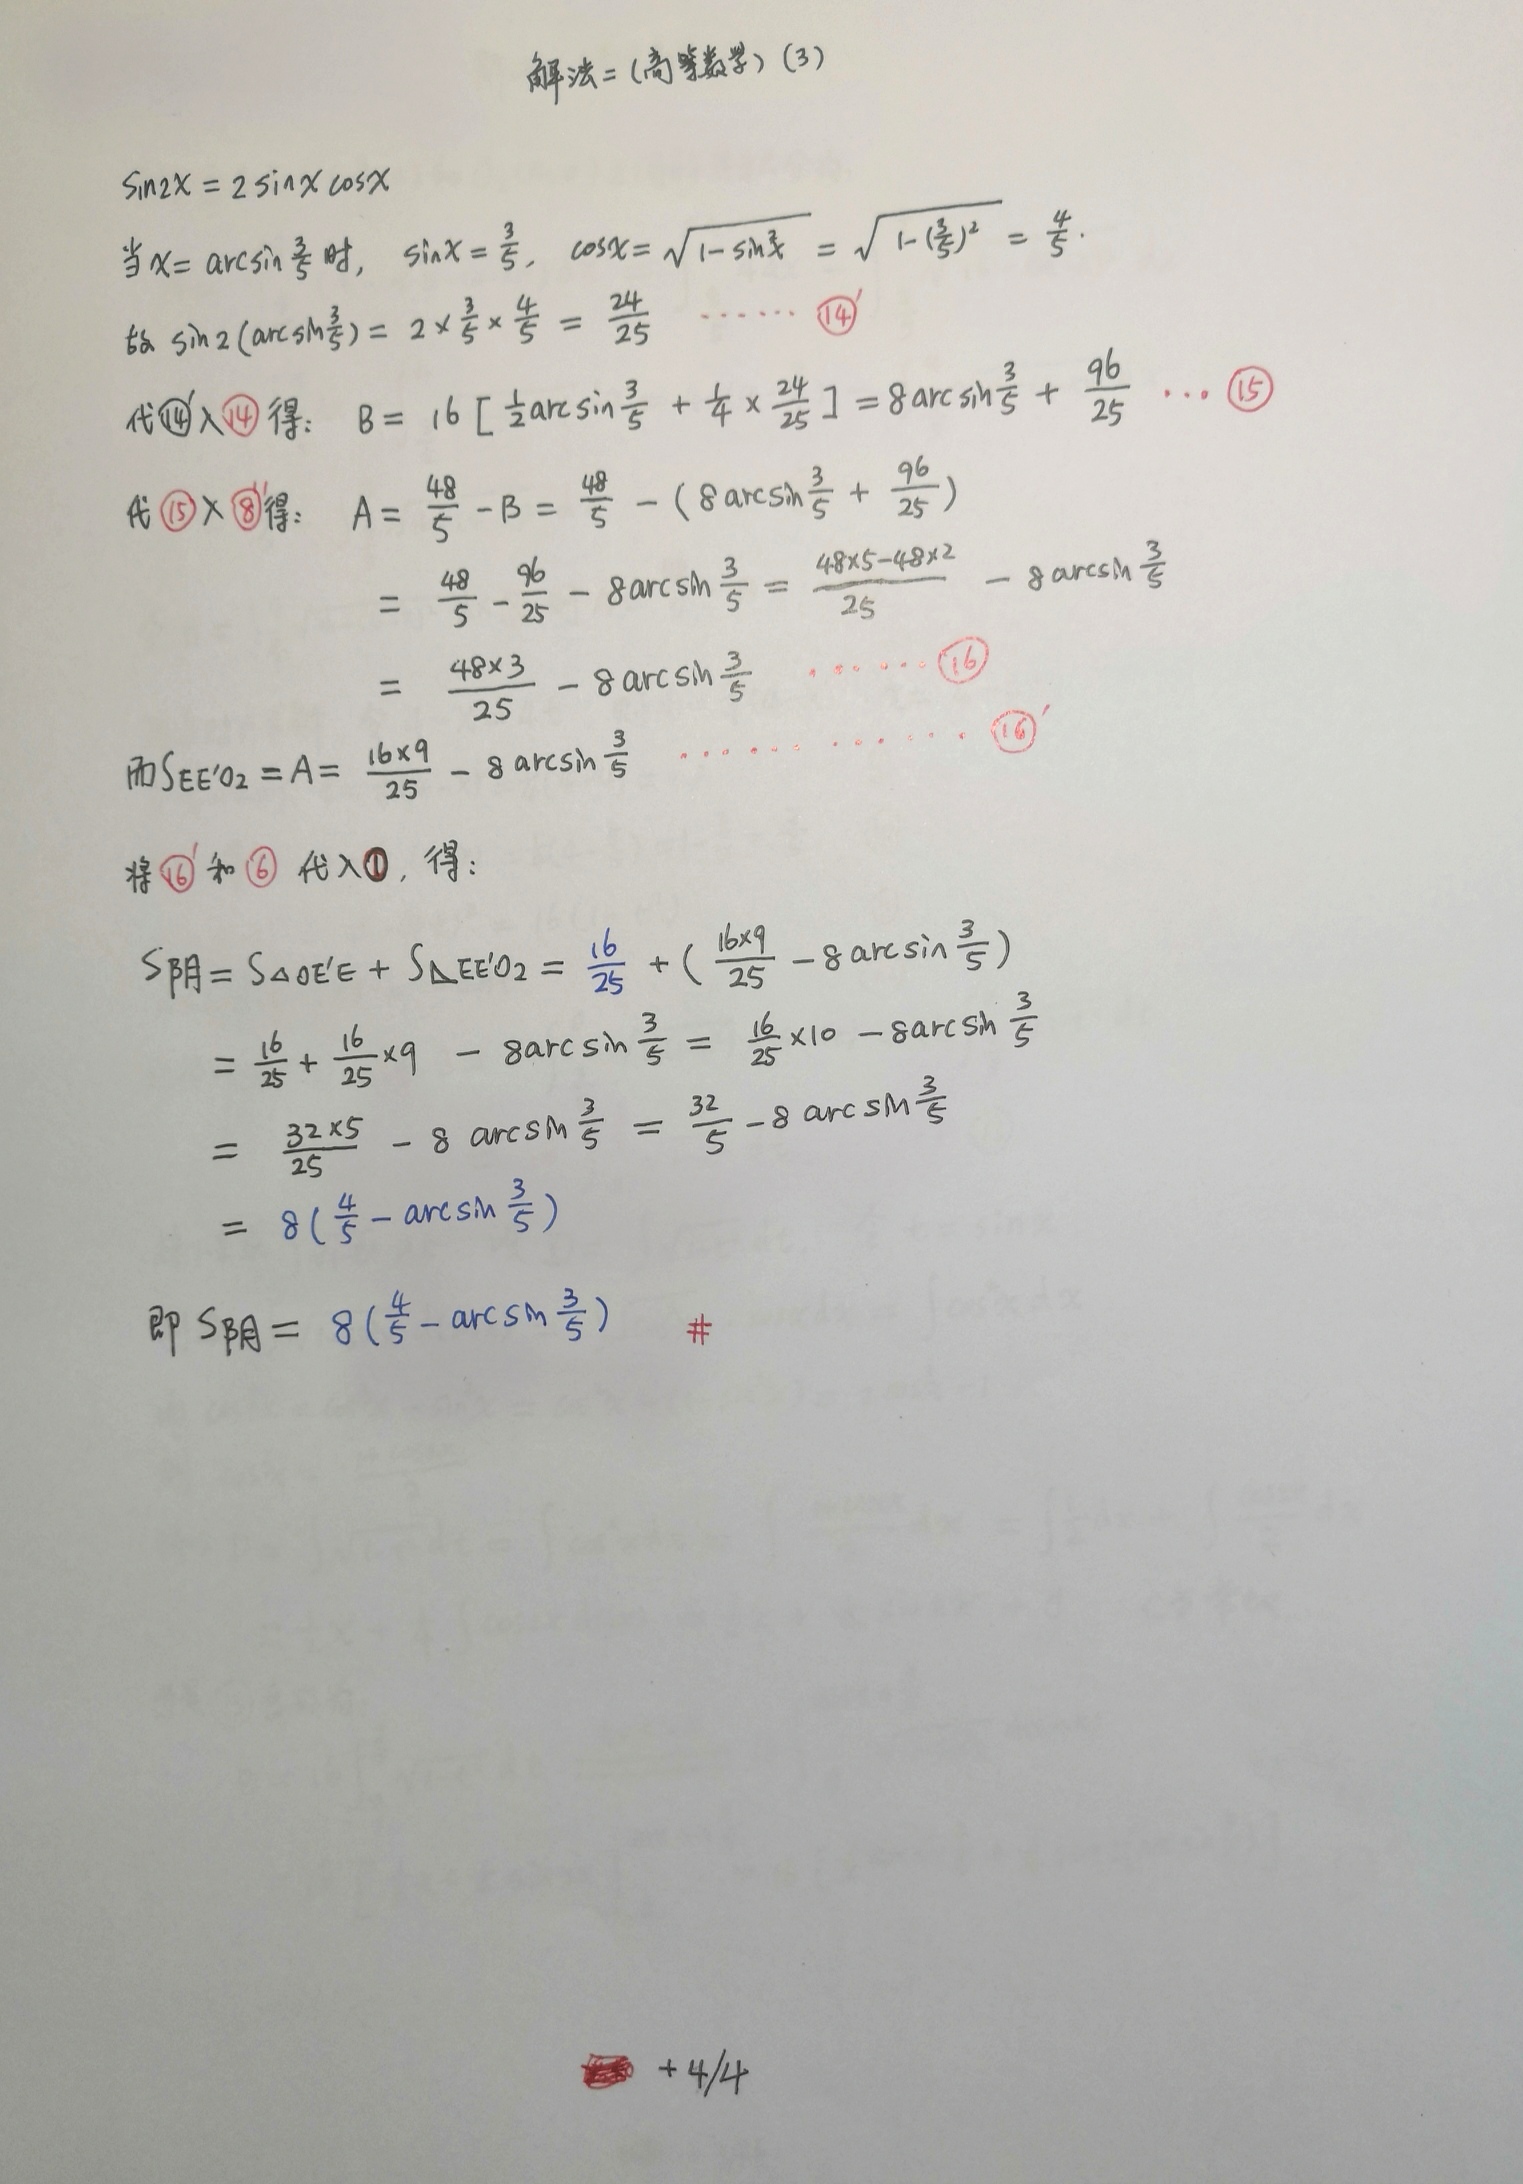 解法二(高等数学)(3)
sin2x = 2sinx cosx
当x = arcsin 3/5 时, sinx = 3/5, cosx = √(1-sin²x) = √(1-(3/5)²) = 4/5.
故 sin2(arcsin 3/5) = 2×3/5×4/5 = 24/25 ······ ⑭'
代⑭'入⑭得: B = 16[1/2 arcsin 3/5 + 1/4 × 24/25] = 8arcsin 3/5 + 96/25 ··· ⑮
代⑮入⑧'得: A = 48/5 - B = 48/5 - (8arcsin 3/5 + 96/25)
= 48/5 - 96/25 - 8arcsin 3/5 = (48×5-48×2)/25 - 8arcsin 3/5
= (48×3)/25 - 8arcsin 3/5 ······· ⑯
而SEE'O₂ = A = (16×9)/25 - 8arcsin 3/5 ············ ⑯'
将⑯'和⑥代入①, 得:
S阴 = S△OE'E + S◺EE'O₂ = 16/25 + ((16×9)/25 - 8arcsin 3/5)
= 16/25 + 16/25×9 - 8arcsin 3/5 = 16/25×10 - 8arcsin 3/5
= (32×5)/25 - 8arcsin 3/5 = 32/5 - 8arcsin 3/5
= 8(4/5 - arcsin 3/5)
即 S阴 = 8(4/5 - arcsin 3/5) #
+4/4